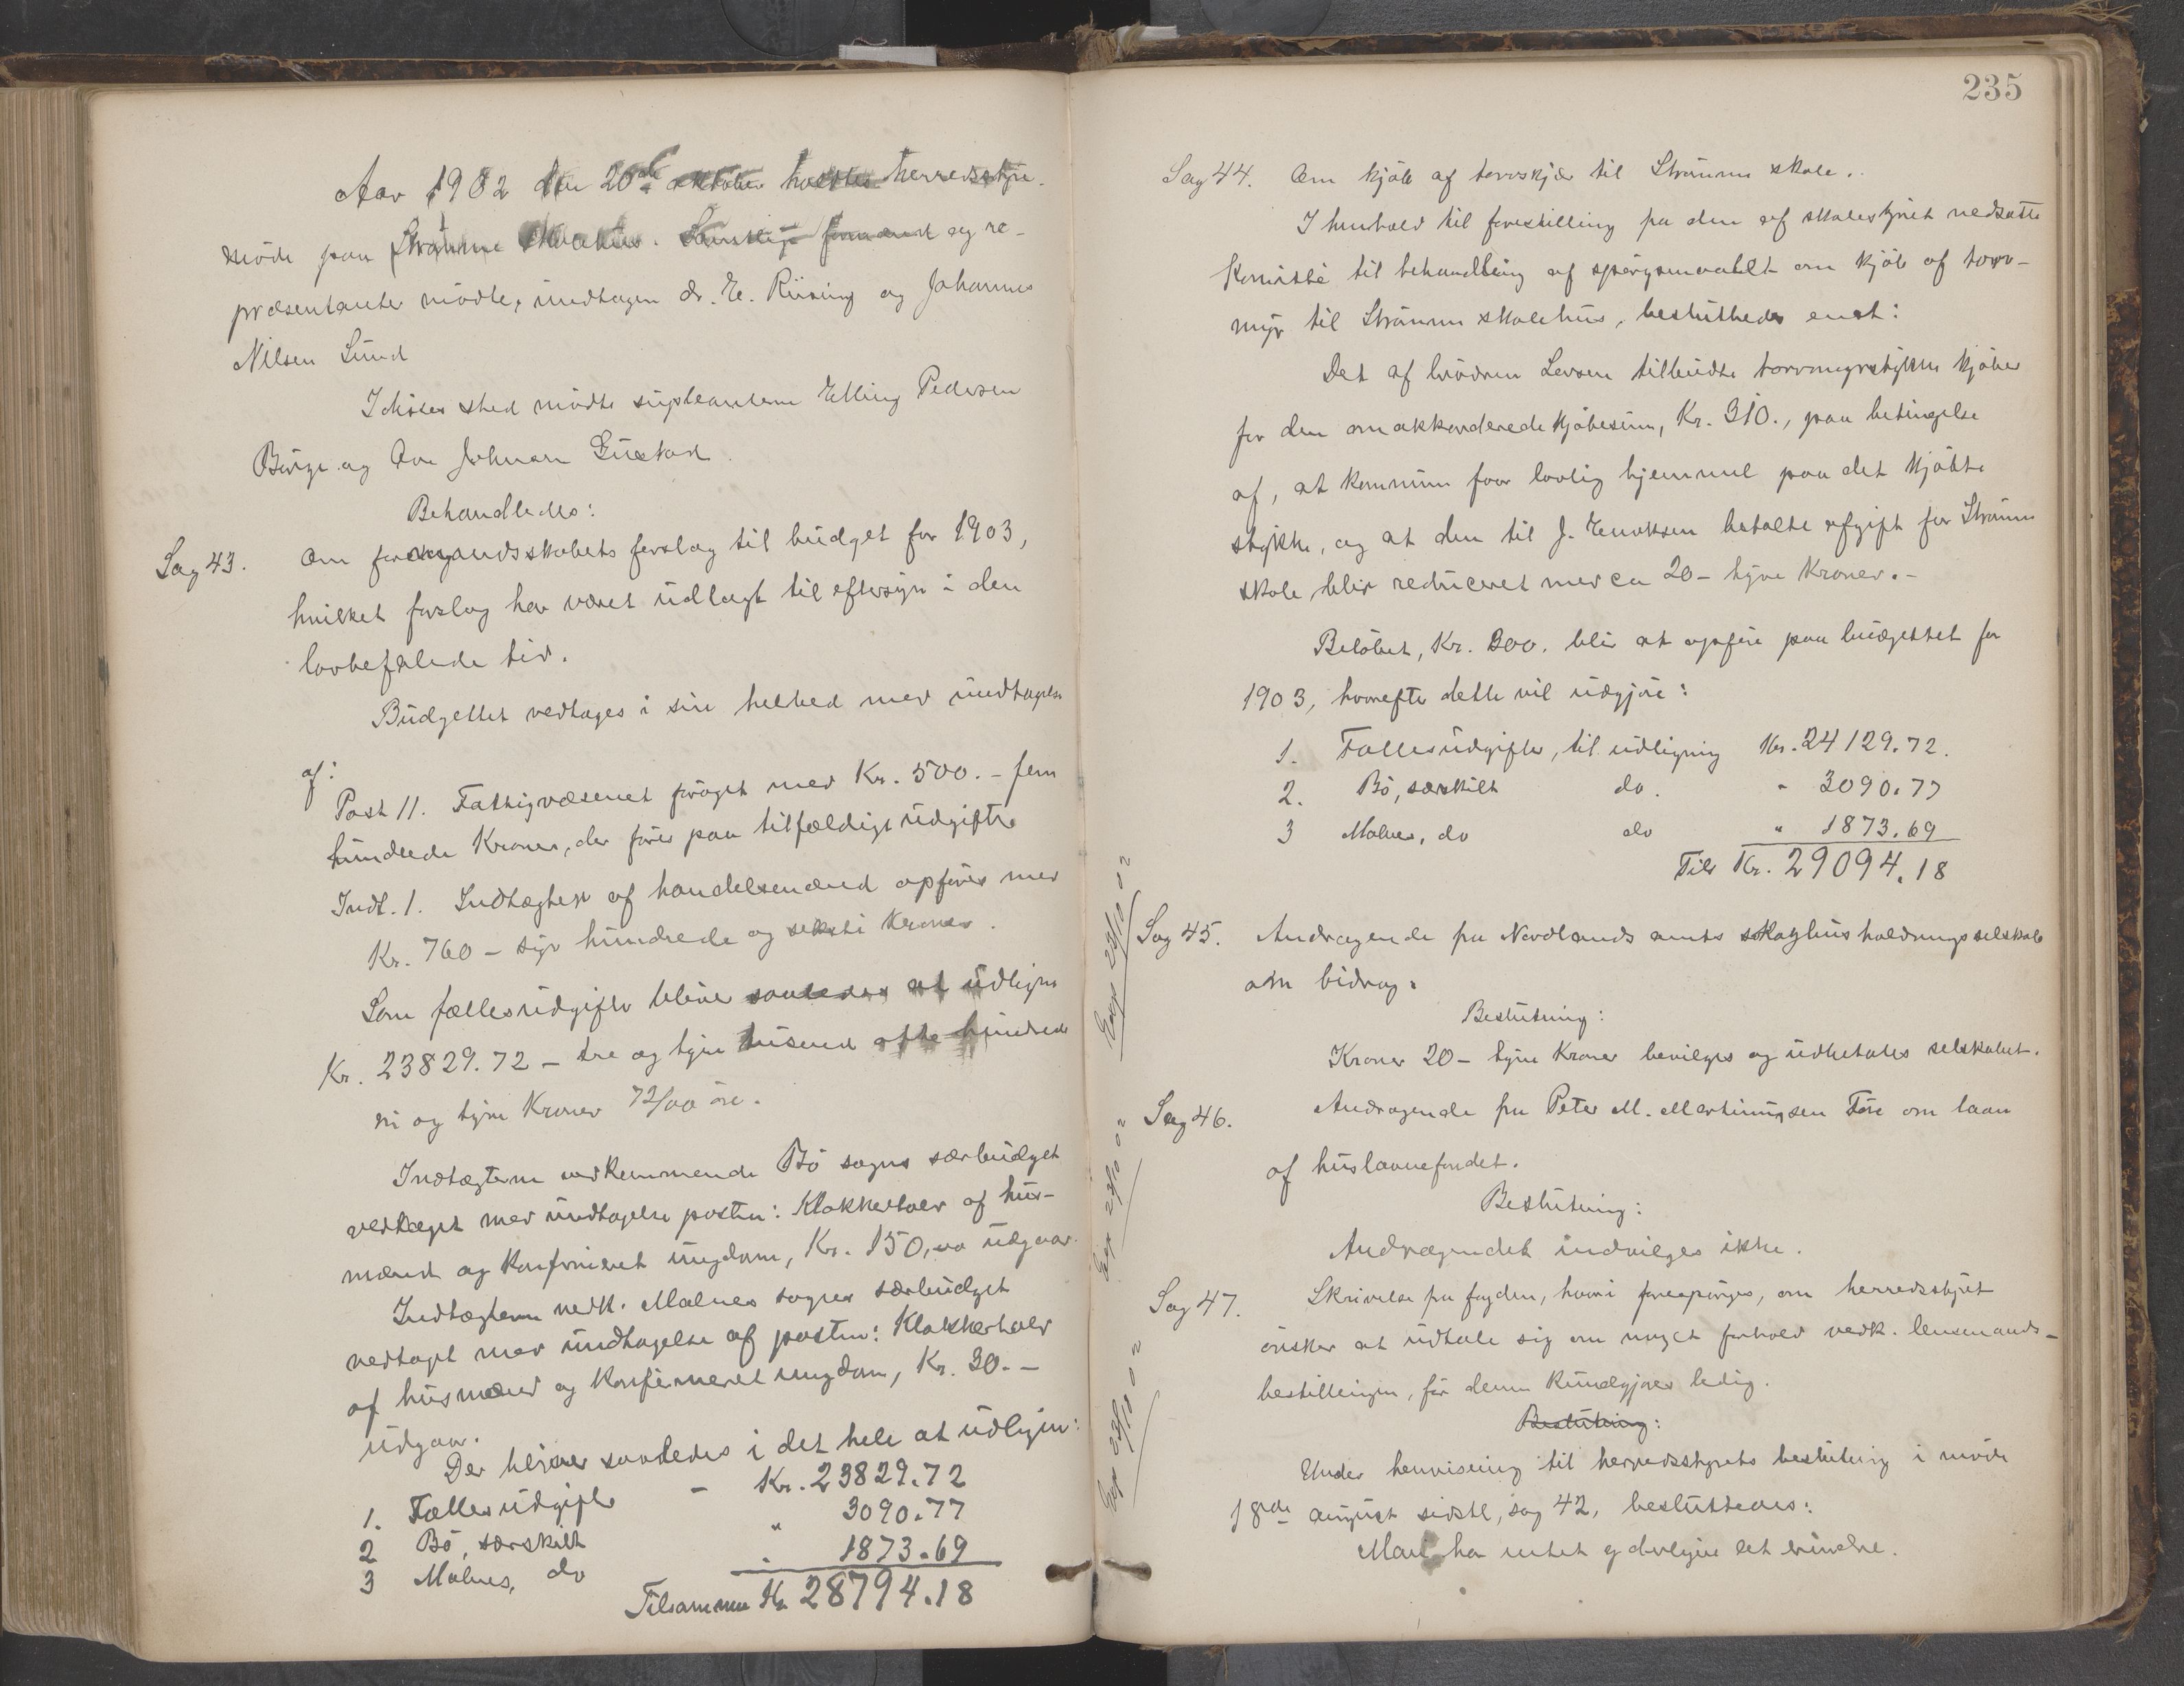 Aar 1902 den 20de oktober holdtes herredsstyre-
møde paa Strømme skolehus. Samtlige formænd og re-
præsentanter mødte, undtagen dr. E. Riising og Johannes
Nilsen Lund
I disses sted mødte supleanterne Elling Pedersen
Børge og Ove Johnsen Gustad.
Behandledes:
Sag 43. Om formandsskabets forslag til budget for 1903,
hvilket forslag har været udlagt til eftersyn i den
lovbefalede tid.
Budgettet vedtages i sin helhed med undtagelse
af:
Post 11. Fattigvæsenet forøget med Kr. 500. – fem
hundrede Kroner, der føres paa tilfældige udgifter
Indt. 1. Indtægten af handelsmænd opføres med
Kr. 760 – syv hundrede og seksti Kroner.
Som fællesudgifter bliver saaledes at udligne
Kr. 23829.72 – tre og tyve tusend otte hundrede
ni og tyve Kroner 72/00 øre.
Indtægterne vedkommende Bø sogns særbudget
vedtaget med undtagelse posten: Klokkertolv af hus-
mænd og konfirmeret ungdom, Kr. 150,00 udgaar.
Indtægterne vedk. Malnes sogns særbudget
vedtaget med undtagelse af posten: Klokkertolv
af husmænd og konfirmeret ungdom, Kr. 30.–
udgaar.
Der bliver saaledes i det hele at udligne:
1. Fællesudgifter – Kr. 23829.72
2 Bø, særskilt " 3090.77
3 Malnes, do " 1873.69
Tilsammen Kr. 28794.18
235
Sag 44. Om kjøb af torvskjær til Strømme skole.
I henhold til forestilling fra den af skolestyret nedsatte
Komité til behandling af spørgsmaalet om kjøb af torv-
myr til Strømme skolehus, besluttedes enst:
Det af brødrene Larsen tilbudte torvmyrstykke kjøbes
for den omakkorderede kjøbesum, Kr. 310., paa betingelse
af, at kommunen faar lovlig hjemmel paa det kjøbte
stykke, og at den til J. Enoksen betalte afgift for Strømme
skole blir reduceret med ca 20 – tyve Kroner. –
Beløbet, Kr. 300. blir at opføre paa budgettet for
1903, hvorefter dette vil udgjøre:
1. Fællesudgifter, til udligning Kr. 24129.72.
2. Bø, særskilt do. " 3090.77
3 Malnes, do do " 1873.69
Tils Kr. 29094.18
Sag 45. Andragende fra Nordlands amts skoghusholdningsselskab
om bidrag.
Exp 23/10 02
Beslutning:
Kroner 20 – tyve Kroner bevilges og udbetales selskabet.
Sag 46. Andragende fra Peter M. Martinussen Føre om laan
af huslaanefondet.
Exp 23/10 02
Beslutning:
Andragendet indvilges ikke.
Sag 47. Skrivelse fra fogden, hvori forespørges, om herredsstyret
ønsker at udtale sig om noget forhold vedk. lensmands-
bestillingen, før denne kundgjøres ledig.
Exp 23/10 02
Beslutning:
Under henvisning til herredsstyrets beslutning i møde
18de august sidstl, sag 42, besluttedes:
Man har intet yderligere at erindre.